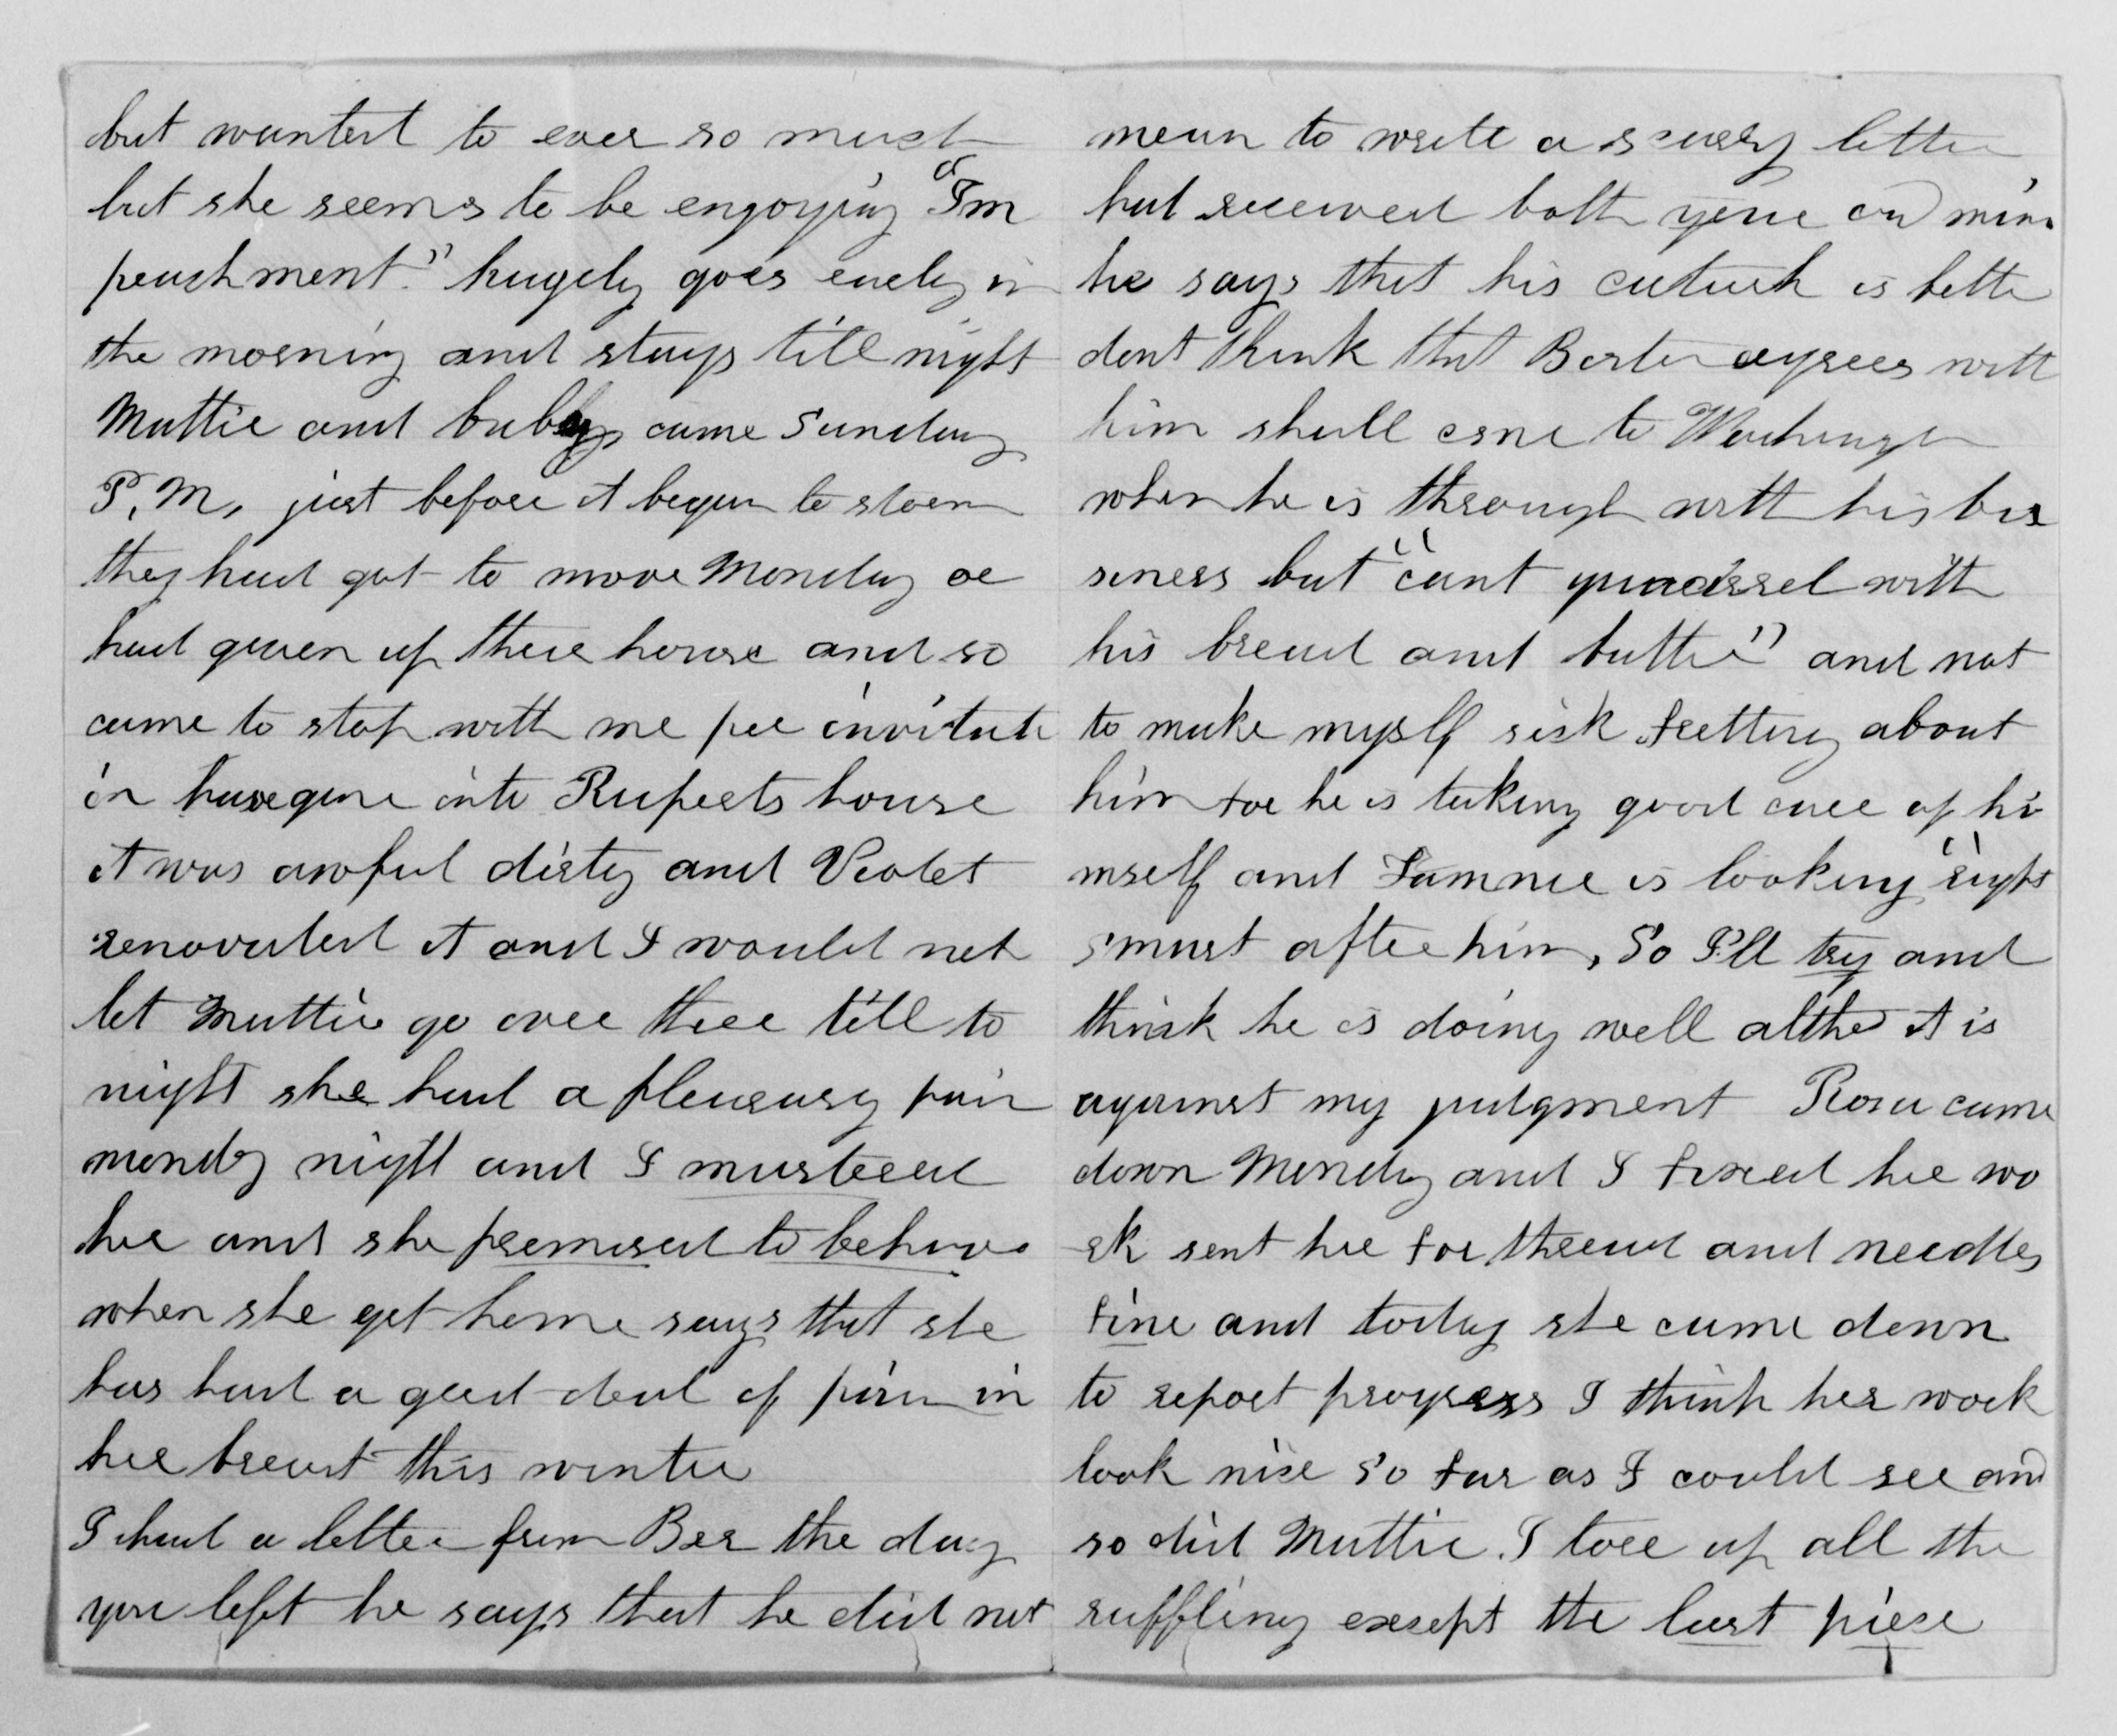 but wanted to ever so much
but she seems to be engoying "Im
peachment." hugely goes early in
the morning and stays till night
Mattie and bubby came Sunday
P.M, just before it began to storm
they had got to move Monday or
had given up their house and so
came to stop with me per invitati
on have gone into Ruperts house
it was awful dirty and Violet
renovated it and I would not
let Mattie go over there till to
night she had a pleurasy pain
monday night and I mustered
her and she promised to behave
when she got home says that she
has had a good deal of pain in
her breast this winter
I had a letter from Ber the day
you left he says that he did not
mean to write a scarry letter
had received both your and mine
he says that his catarrh is better
dont think that Boston agrees with
him shall come to Washington
when he is through with his bu
siness but "cant quarrel with
his bread and butter" and not
to make myself sick fretting about
him for he is taking good care of hi
mself and Fannie is looking "right
smart after him, So I'll try and
think he is doing well altho it is
against my judgment Rosa came
down Monday and I fixed her wo
rk sent her for thread and needles
fine and today she came down
to report progress I think her work
look nice So far as I could see and
so did Mattie. I tore up all the
ruffling except the last piece